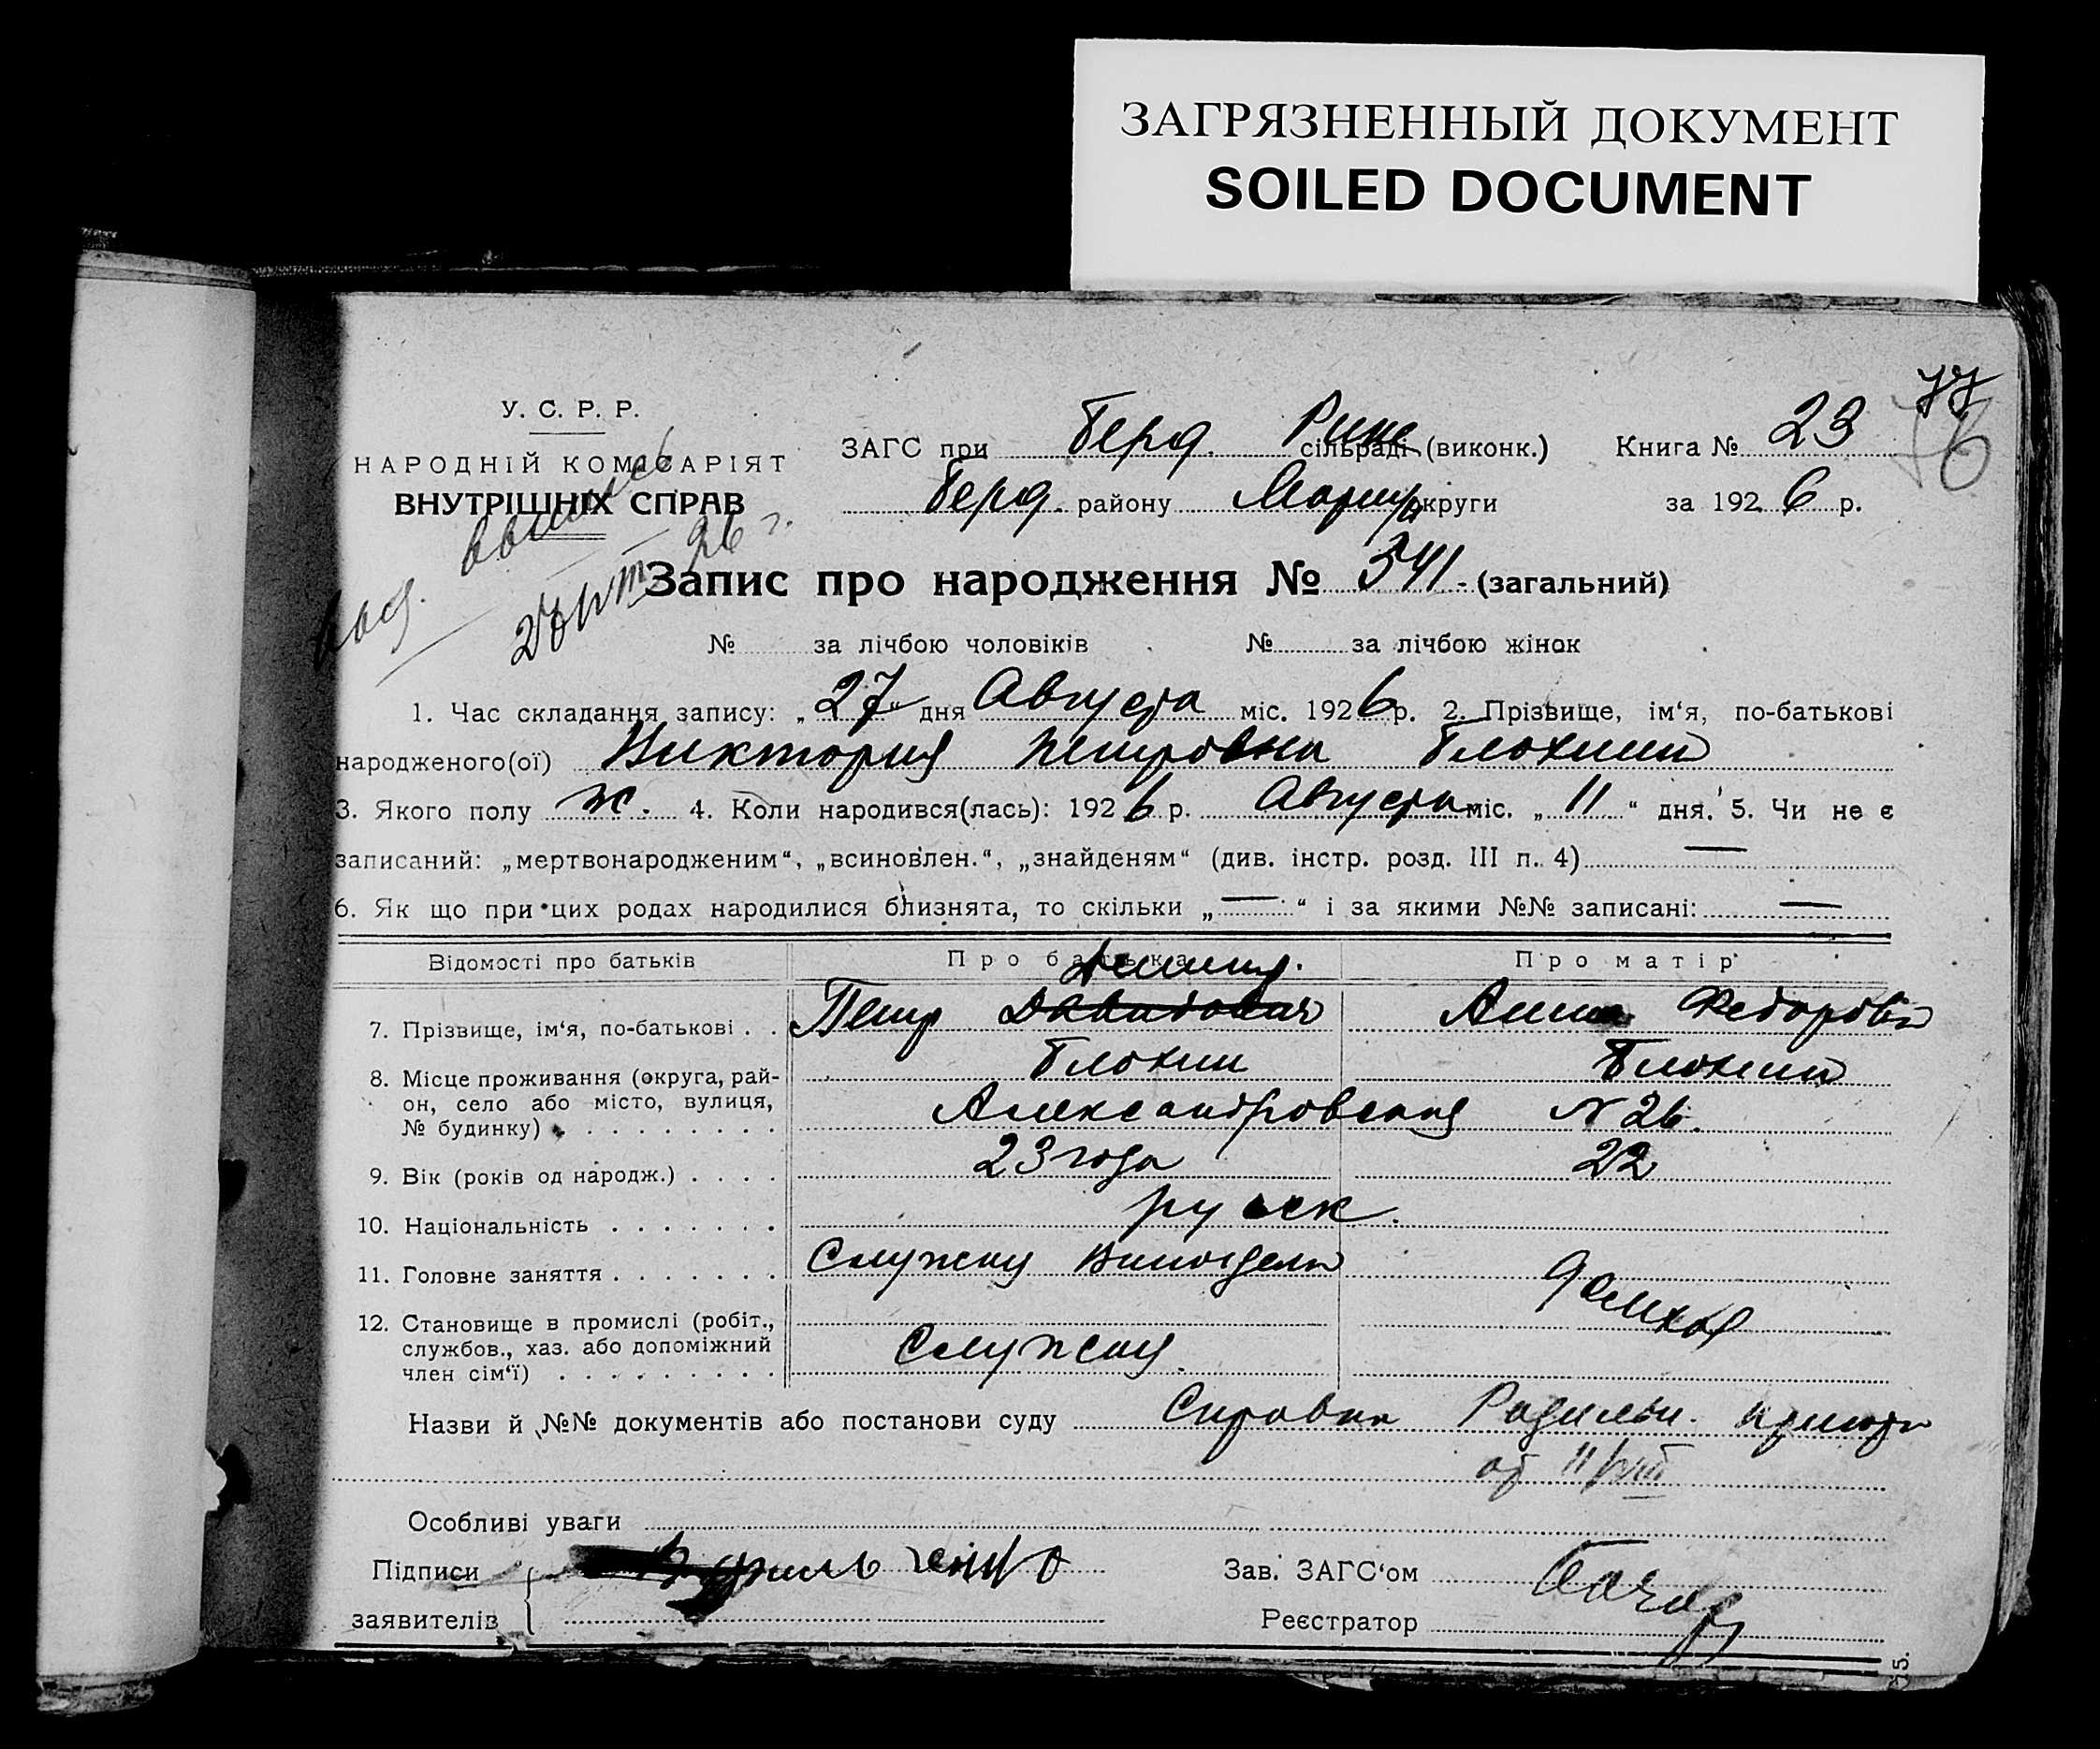 ЗАГРЯЗНЕННЫЙ ДОКУМЕНТ
SOILED DOCUMENT
77
76
У. С. Р. Р.
НАРОДНІЙ КОМІСАРІЯТ
ВНУТРІШНІХ СПРАВ
ЗАГС при Берд. сільраді (виконк.) Книга № 23
Берд. району Мариуп округи за 1926 р.
26 г.
Запис про народження № 341 (загальний)
№ за лічбою чоловіків № за лічбою жінок
1. Час складання запису: „27“ дня Августа міс. 1926 р. 2. Прізвище, ім‘я, по-батькові
народженого(ої) Виктория Петровна Блохина
3. Якого полу ж. 4. Коли народився(лась): 1926 р. Августа міс. „11“ дня. 5. Чи не є
записаний: „мертвонародженим“, „всиновлен.“, „знайденям“ (див. інстр. розд. III п. 4) —
6. Як що при цих родах народилися близнята, то скільки „—“ і за якими №№ записані: —
Відомості про батьків Про батька Про матір
7. Прізвище, ім‘я, по-батькові . . Петр Давидович Анна Федоровн
Блохин Блохина
8. Місце проживання (округа, рай-
он, село або місто, вулиця,
№ будинку) Александровская N 26.
9. Вік (років од народж.) . . . . 23 года 22
10. Національність . . . . . . . русск.
11. Головне заняття . . . . . . . Служащ Винодел
12. Становище в промислі (робіт.,
службов., хаз. або допоміжний
член сім‘ї) . . . . . . . . . Служащ.
Назви й №№ документів або постанови суду Справка Родильн. приюта
от 11/VIII
Особливі уваги
Підписи
заявителів
Зав. ЗАГС‘ом
Реєстратор